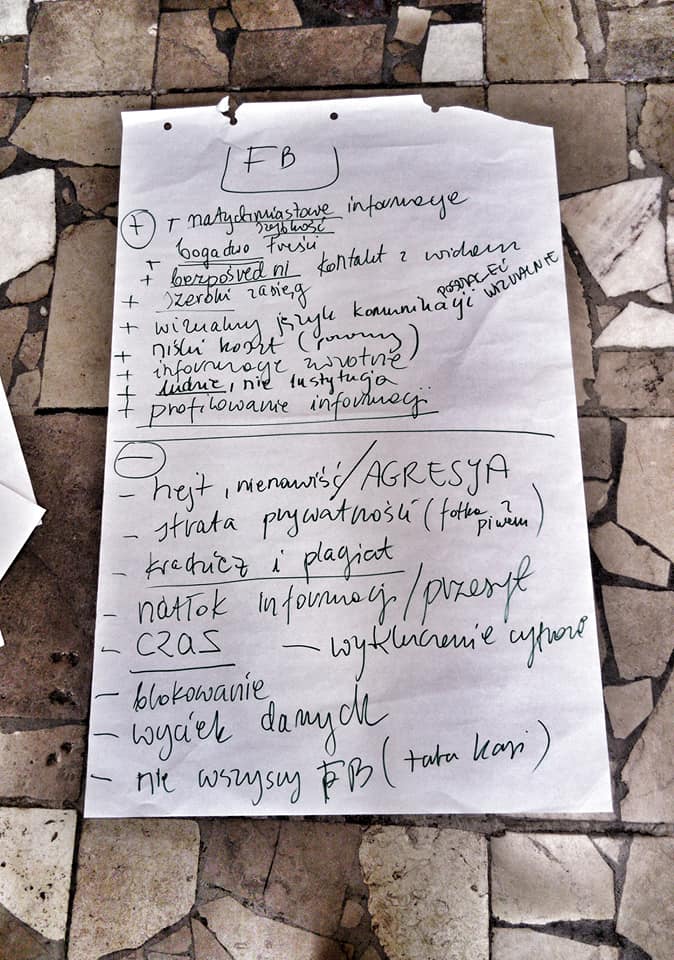 FB
+ + natychmiastowe informacje
szybkość
+ bogactwo treści
+ bezpośredni kontakt z widzem
+ szeroki zasięg
+ wizualny język komunikacji POJĄĆ WIZUALNIE
+ niski koszt (                )
+ informacje zwrotne
+ ludzie, nie instytucja
+ profilowanie informacji
-
- hejt, nienawiść / AGRESJA
- strata prywatności (fotka z piwem)
- kradzież i plagiat
- natłok informacji / przesyt
- CZAS - wykluczenie cyfrowe
- blokowanie
- wyciek danych
- nie wszyscy FB (tata Kasi)